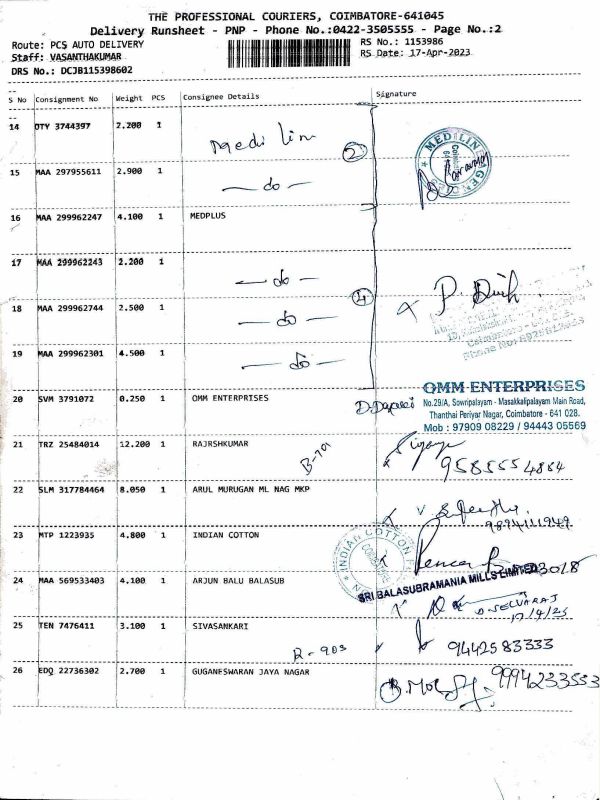 THE PROFESSIONAL COURIERS, COIMBATORE-641045
Delivery Runsheet - PNP - Phone No.:0422-3505555 - Page No.:2
Route: PCS AUTO DELIVERY
RS No.: 1153986
Staff: VASANTHAKUMAR
RS Date: 17-Apr-2023
DRS No.: DCJB115398602
S No Consignment No Weight PCS Consignee Details Signature
14 OTY 3744397 2.200 1 Medi Lin
2
MEDI LINE AGENCIES
15 MAA 297955611 2.900 1 - do -
16 MAA 299962247 4.100 1 MEDPLUS
17 MAA 299962243 2.200 1 - do -
4
18 MAA 299962744 2.500 1 - do -
19 MAA 299962301 4.500 1 - do -
20 SVM 3791072 0.250 1 OMM ENTERPRISES
OMM ENTERPRISES
No.29/A, Sowripalayam - Masakkalipalayam Main Road,
Thanthai Periyar Nagar, Coimbatore - 641 028.
Mob : 97909 08229 / 94443 05569
21 TRZ 25484014 12.200 1 RAJRSHKUMAR
9585554884
22 SLM 317784464 8.050 1 ARUL MURUGAN ML NAG MKP
9894111949
23 MTP 1223935 4.800 1 INDIAN COTTON
INDIAN COTTON
COIMBATORE
24 MAA 569533403 4.100 1 ARJUN BALU BALASUB
SRI BALASUBRAMANIA MILLS LIMITED
D. SELVARAJ
17/4/23
25 TEN 7476411 3.100 1 SIVASANKARI
R-903
9442583333
26 EDQ 22736302 2.700 1 GUGANESWARAN JAYA NAGAR
9994233533